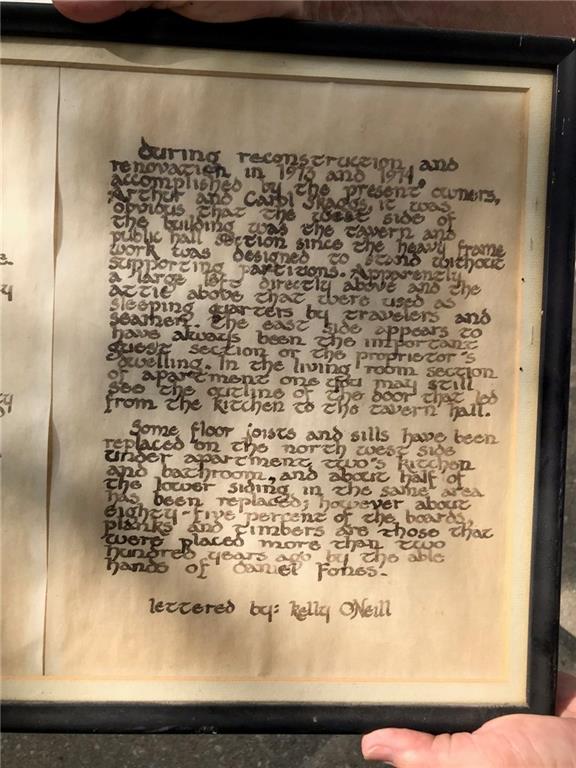 e.
y
ty
During reconstruction and
renovation in 1973 and 1974,
accomplished by the present owners,
Arthur and Carol Skaggs, it was
obvious that the west side of
the building was the tavern and
public hall section since the heavy frame
work was designed to stand without
supporting partitions. Apparently
a large left directly above and the
attic above that were used as
sleeping quarters by travelers and
seamen. The east side appears to
have always been the important
guest section or the proprietor's
dwelling. In the living room section
of apartment one you may still
see the outline of the door that led
from the kitchen to the tavern hall.
Some floor joists and sills have been
replaced on the north west side
under apartment two's kitchen
and bathroom, and about half of
the lower siding in the same area
has been replaced; however about
eighty-five percent of the boards,
planks and timbers are those that
were placed more than two
hundred years ago by the able
hands of Daniel Fones.
lettered by: Kelly O'Neill